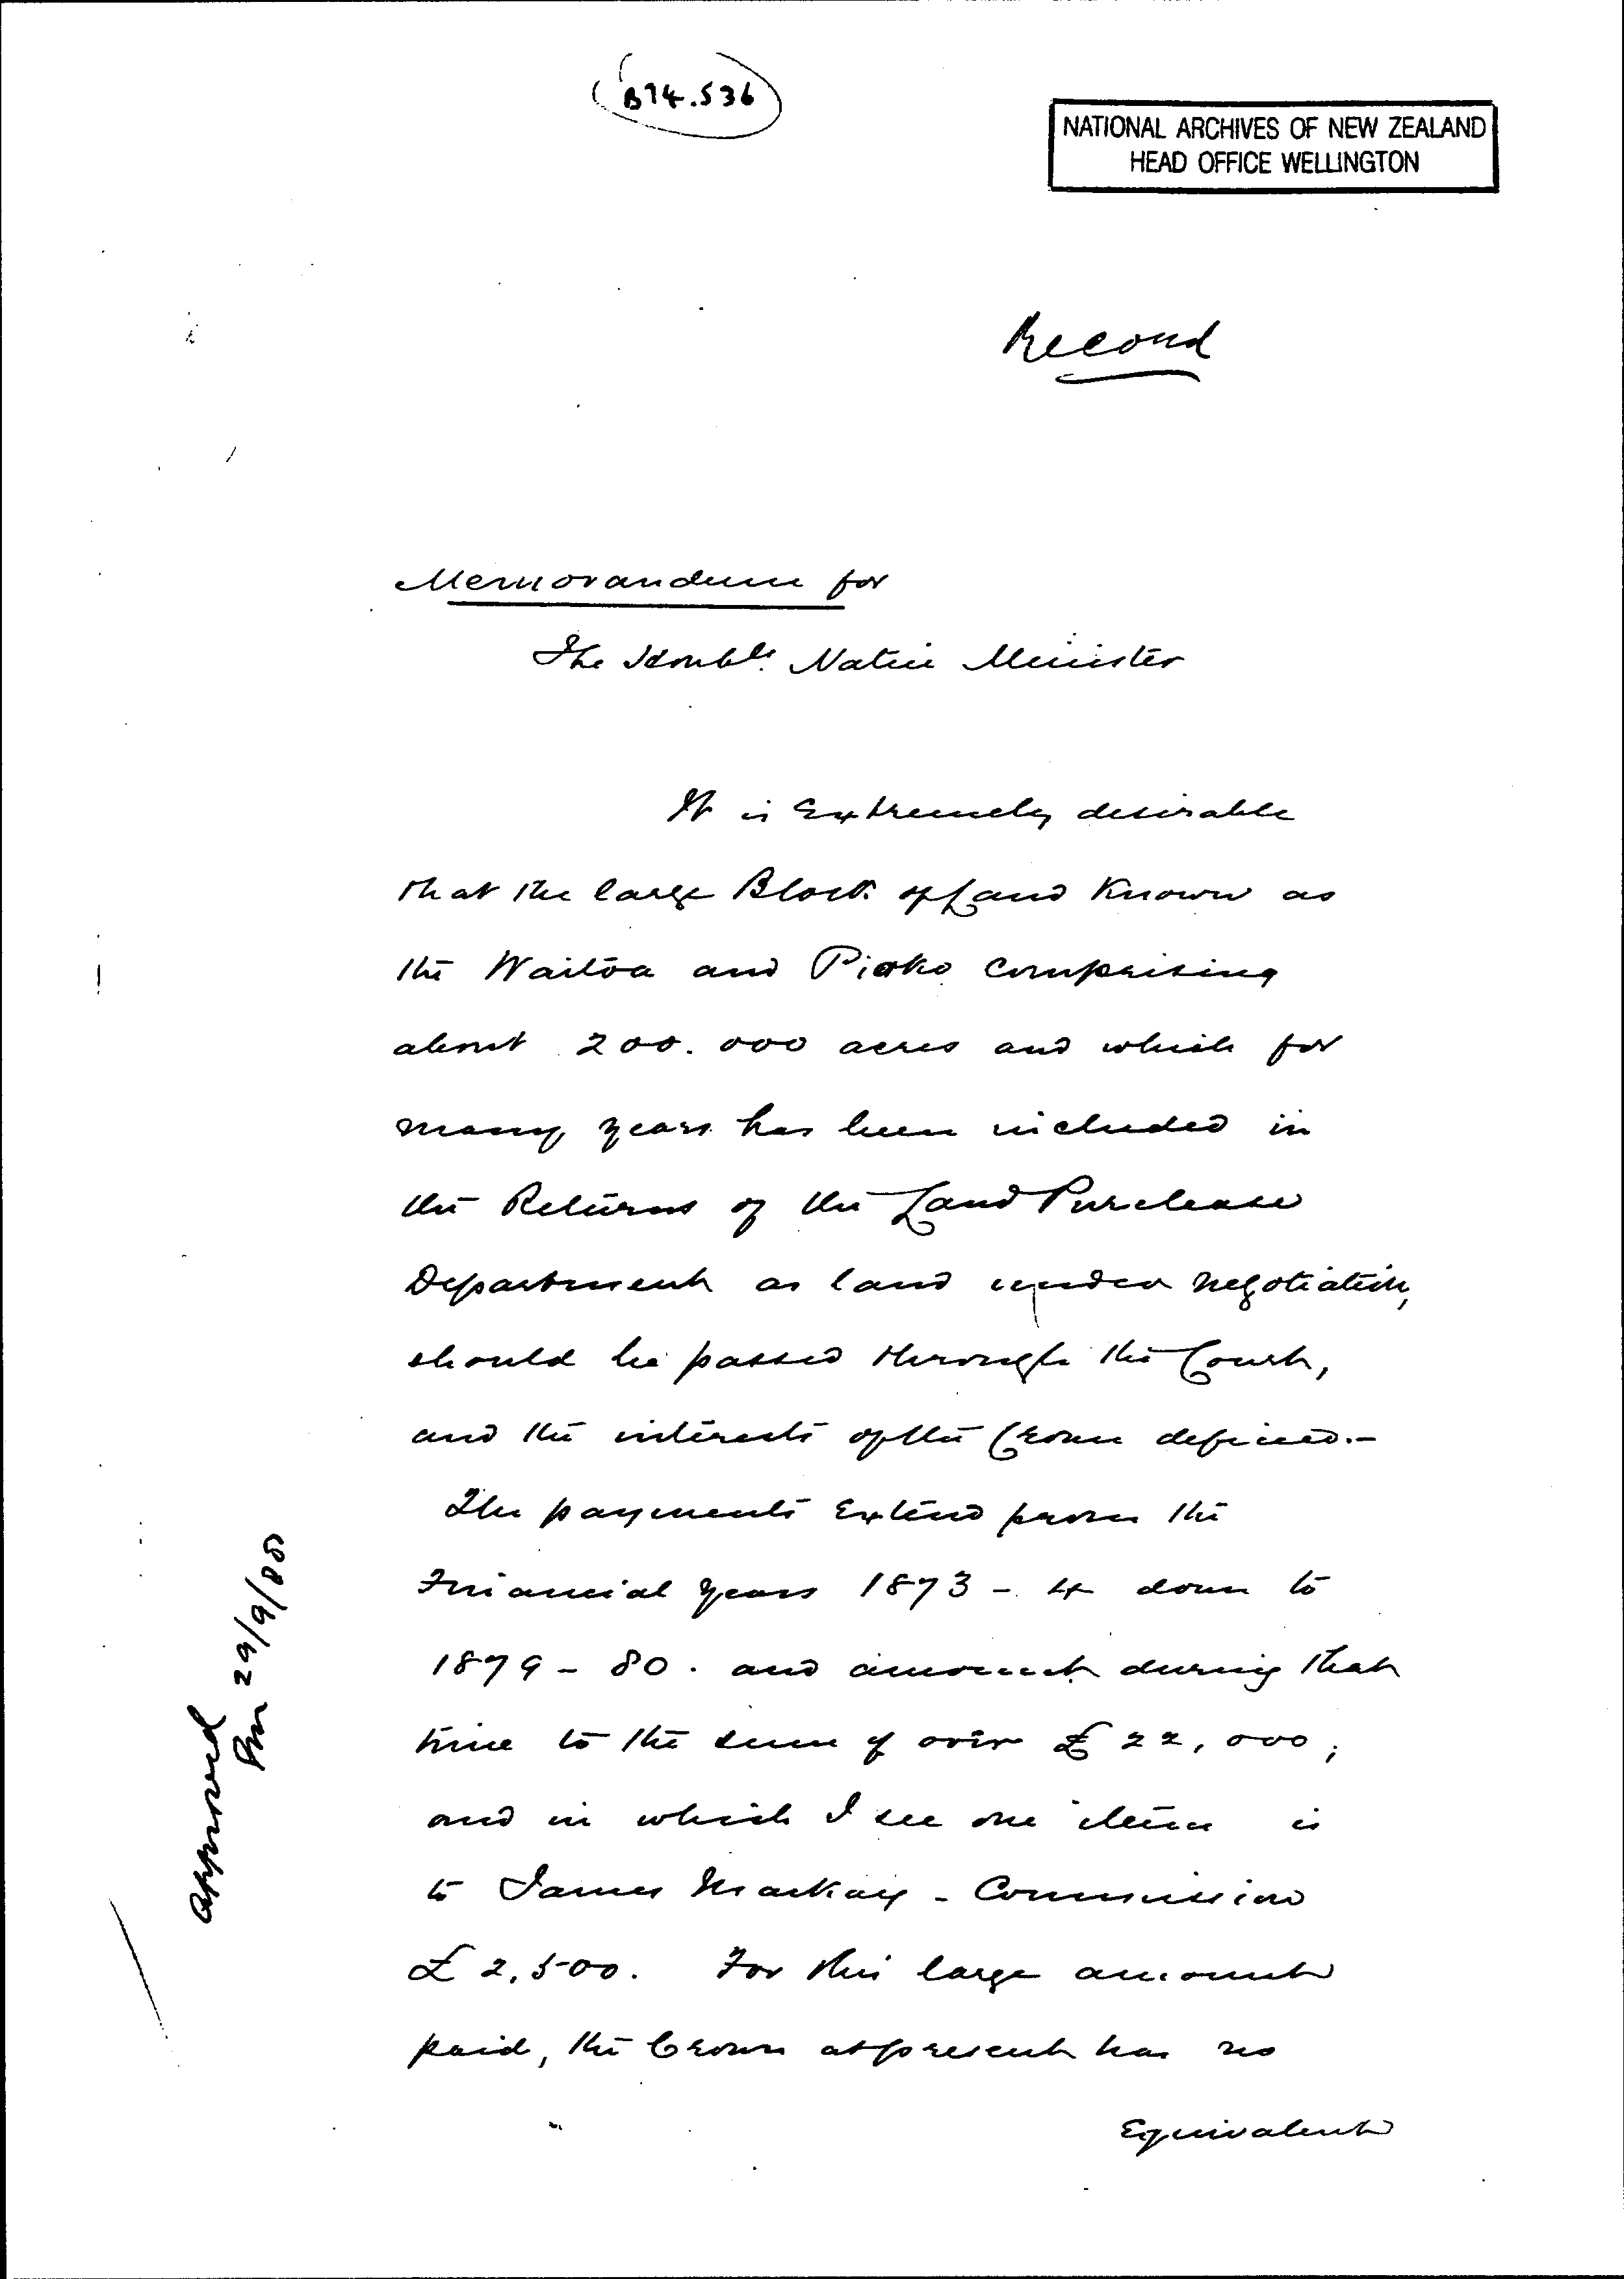 B74.536
NATIONAL ARCHIVES OF NEW ZEALAND
HEAD OFFICE WELLINGTON
Record
Memorandum for
The Honble. Native Minister
It is Extremely desirable
that the large Block of Land Known as
the Waitoa and Piako comprising
about 200.000 acres and which for
many years has been included in
the Returns of the Land Purchase
Department as land under negotiation,
should be passed through the Court,
and the interests of the Crown defined.-
The payments Extend from the
Financial years 1873-4 down to
1879-80. and amount during that
time to the sum of over £22,000;
and in which I see one item is
to James Mackay - Commission
£2,500. For this large amount
paid, the Crown at present has no
Equivalent
Approved
29/9/85